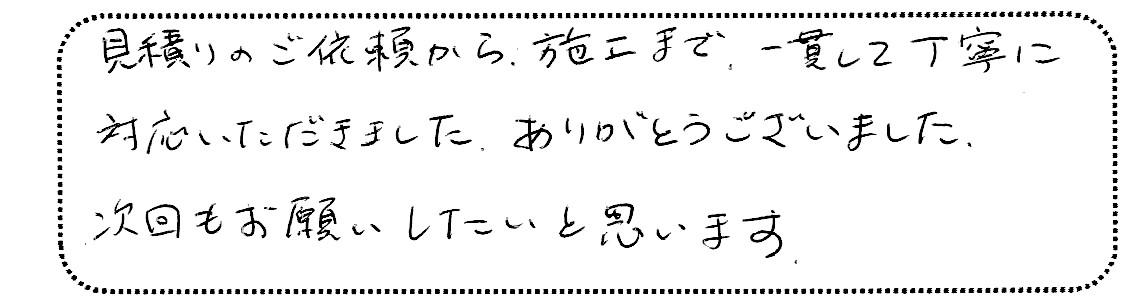 見積りのご依頼から、施工まで、一貫して丁寧に
対応いただきました。ありがとうございました。
次回もお願いしたいと思います。